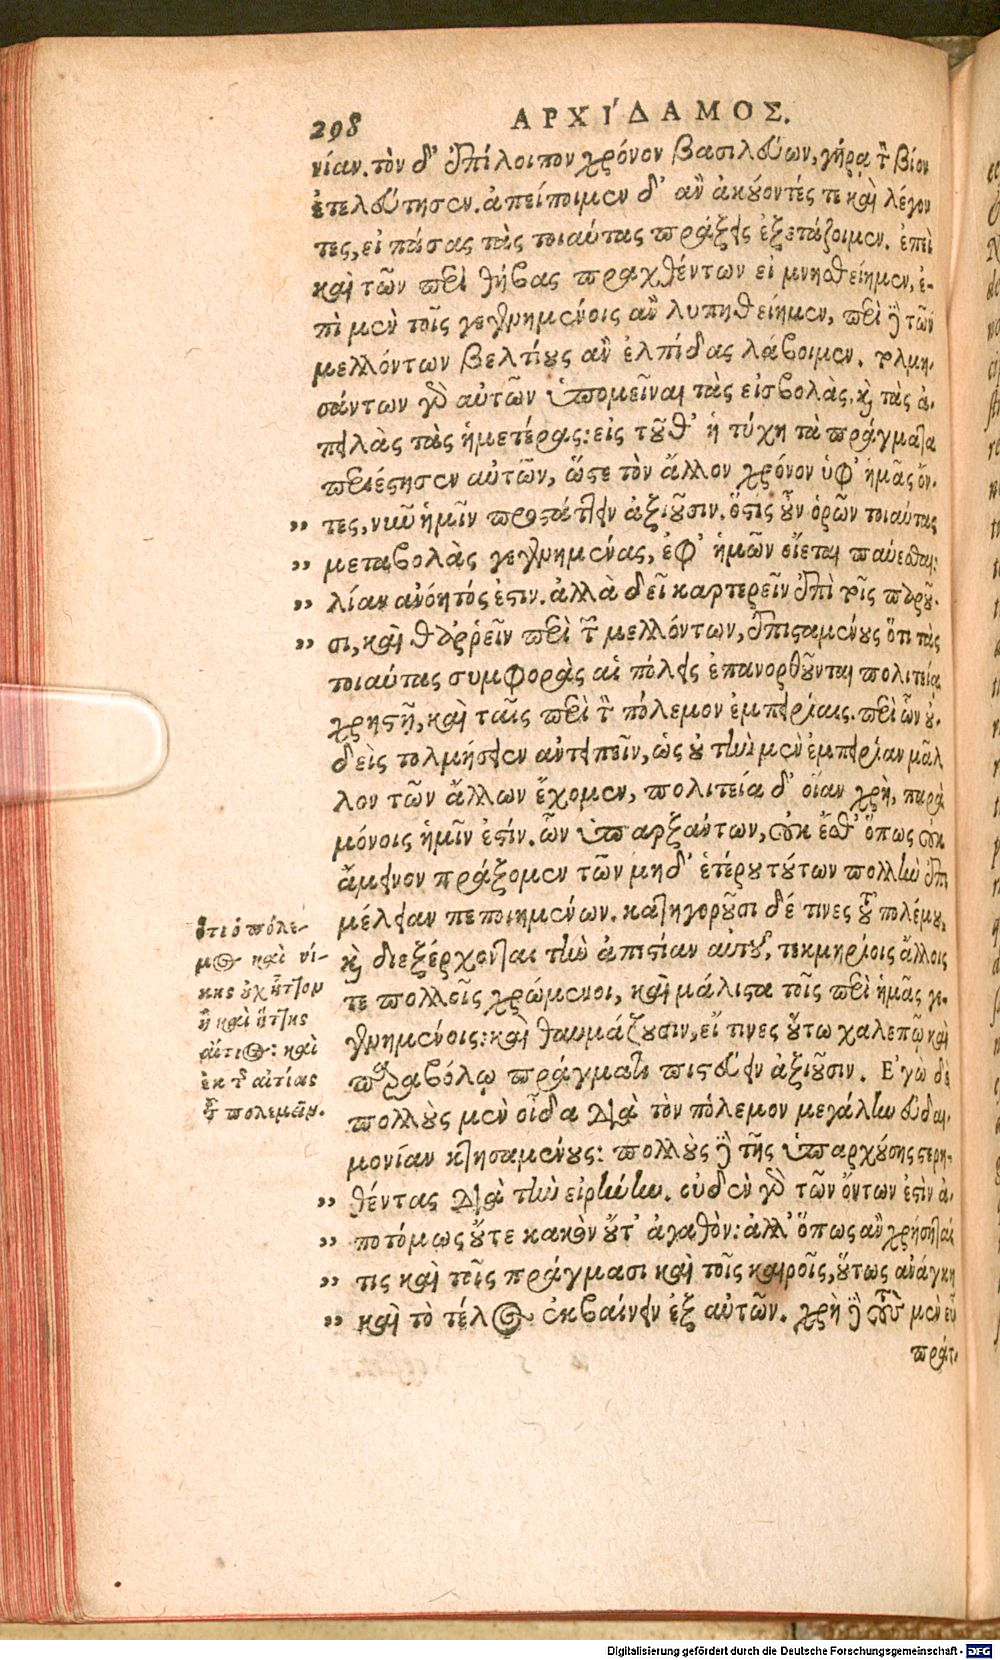 298
ΑΡΧΙΔΑΜΟΣ.
νίαν. τὸν δ᾽ ἐπίλοιπον χρόνον βασιλεύων, γήρᾳ τὸν βίον
ἐτελεύτησεν. ἀπείποιμεν δ᾽ ἂν ἀκούοντές τε καὶ λέγον
τες, εἰ πάσας τὰς τοιαύτας πράξεις ἐξετάζοιμεν. ἐπεὶ
καὶ τῶν περὶ θήβας πραχθέντων εἰ μνησθείημεν, ἐ-
πὶ μὲν τοῖς γεγενημένοις ἂν λυπηθείημεν, περὶ δὲ τῶν
μελλόντων βελτίους ἂν ἐλπίδας λάβοιμεν. τολμη-
σάντων γὰρ αὐτῶν ὑπομεῖναι τὰς εἰσβολὰς, καὶ τὰς ἀ-
πειλὰς τὰς ἡμετέρας: εἰς τοῦθ᾽ ἡ τύχη τὰ πράγματα
περιέστησεν αὐτῶν, ὥστε τὸν ἄλλον χρόνον ὑφ᾽ ἡμᾶς ὄν-
„ τες, νῦν ἡμῖν προστάττειν ἀξιοῦσιν. ὅστις οὖν ὁρῶν τοιαύτας
„ μεταβολὰς γεγενημένας, ἐφ᾽ ἡμῶν οἴεται παύεσθαι:
„ λίαν ἀνόητός ἐστιν. ἀλλὰ δεῖ καρτερεῖν ἐπὶ τοῖς παροῦ-
„ σι, καὶ θαῤῥεῖν περὶ τῶν μελλόντων, ἐπισταμένους ὅτι τὰς
τοιαύτας συμφορὰς αἱ πόλεις ἐπανορθοῦνται πολιτείᾳ
χρηστῇ, καὶ ταῖς περὶ τὸν πόλεμον ἐμπειρίαις. περὶ ὧν οὐ-
δεὶς τολμήσειεν ἀντειπεῖν, ὡς οὐ τὴν μὲν ἐμπειρίαν μᾶλ
λον τῶν ἄλλων ἔχομεν, πολιτεία δ᾽ οἵαν χρὴ, παρὰ
μόνοις ἡμῖν ἐστίν. ὧν ὑπαρξάντων, οὐκ ἔσθ᾽ ὅπως οὐκ
ἄμεινον πράξομεν τῶν μηδ᾽ ἑτέρου τούτων πολλὴν ἐπι
μέλειαν πεποιημένων. κατηγοροῦσι δέ τινες τοῦ πολέμου,
καὶ διεξέρχονται τὴν ἀπιστίαν αὐτοῦ, τεκμηρίοις ἄλλοις
τε πολλοῖς χρώμενοι, καὶ μάλιστα τοῖς περὶ ἡμᾶς γε-
γενημένοις: καὶ θαυμάζουσιν, εἴ τινες οὕτω χαλεπῷ καὶ
παραβόλῳ πράγματι πιστεύειν ἀξιοῦσιν. Ἐγὼ δὲ
πολλοὺς μὲν οἶδα διὰ τὸν πόλεμον μεγάλην εὐδαι-
μονίαν κτησαμένους: πολλοὺς δὲ τῆς ὑπαρχούσης στερη-
„ θέντας διὰ τὴν εἰρήνην. οὐδὲν γὰρ τῶν ὄντων ἐστὶν ἀ-
„ ποτόμως οὔτε κακὸν οὔτ᾽ ἀγαθὸν: ἀλλ᾽ ὅπως ἂν χρήσηταί
„ τις καὶ τοῖς πράγμασι καὶ τοῖς καιροῖς, οὕτως ἀνάγκη
„ καὶ τὸ τέλος ἐκβαίνειν ἐξ αὐτῶν. χρὴ δὲ τοὺς μὲν εὖ
πράτ-
ὅτι ὁ πόλε-
μος καὶ νί-
κης οὐχ ἧττον
ἢ καὶ ἥττης
αἴτιος: καὶ
ἐκ τῆς αἰτίας
τοῦ πολεμεῖν.
Digitalisierung gefördert durch die Deutsche Forschungsgemeinschaft - DFG